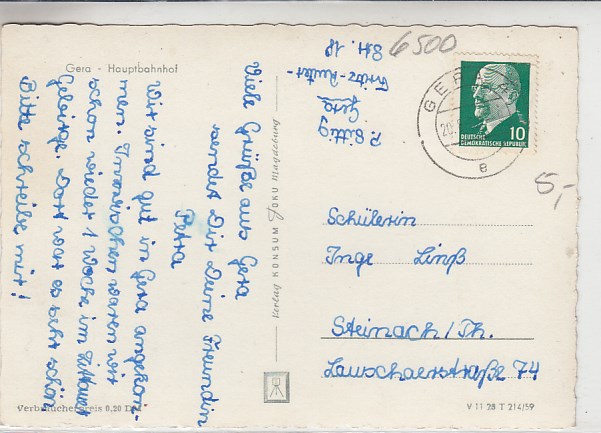 Gera - Hauptbahnhof
Viele Grüße aus Gera
sendet Dir Deine Freundin
Petra
Wir sind gut in Gera angekom-
men. Inzwischen waren wir
schon wieder 1 Woche im Zittauer
Gebirge. Dort war es sehr schön
Bitte schreibe mir!
Verbraucherpreis 0,20 DM
Verlag KONSUM FOKU Magdeburg
P. Sittig
Gera
Fritz-Reuter-
Str. 18
6500
GERA
20.
e
10
DEUTSCHE
DEMOKRATISCHE REPUBLIK
5,-
Schülerin
Inge Linß
Steinach/Th.
Lauschaerstraße 74
V 11 28 T 214/59